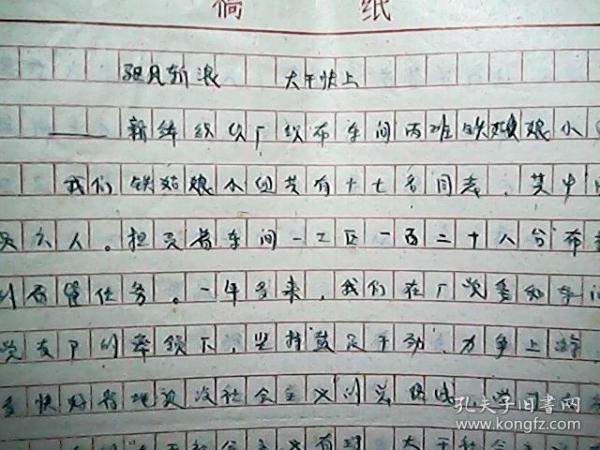 稿 纸
迎风斩浪 大干快上
——新绵织纱厂织布车间丙班铁姑娘小
我们铁姑娘小组共有十七名同志，其中
员六人。担负着车间一工区一百二十八台布
的看管任务。一年多来，我们在厂党委和车间
党支部的牵领下，坚持鼓足干劲，力争上游
多快好省地建设社会主义的总路线，学习
大干社会主义
孔夫子旧书网
kongfz.com